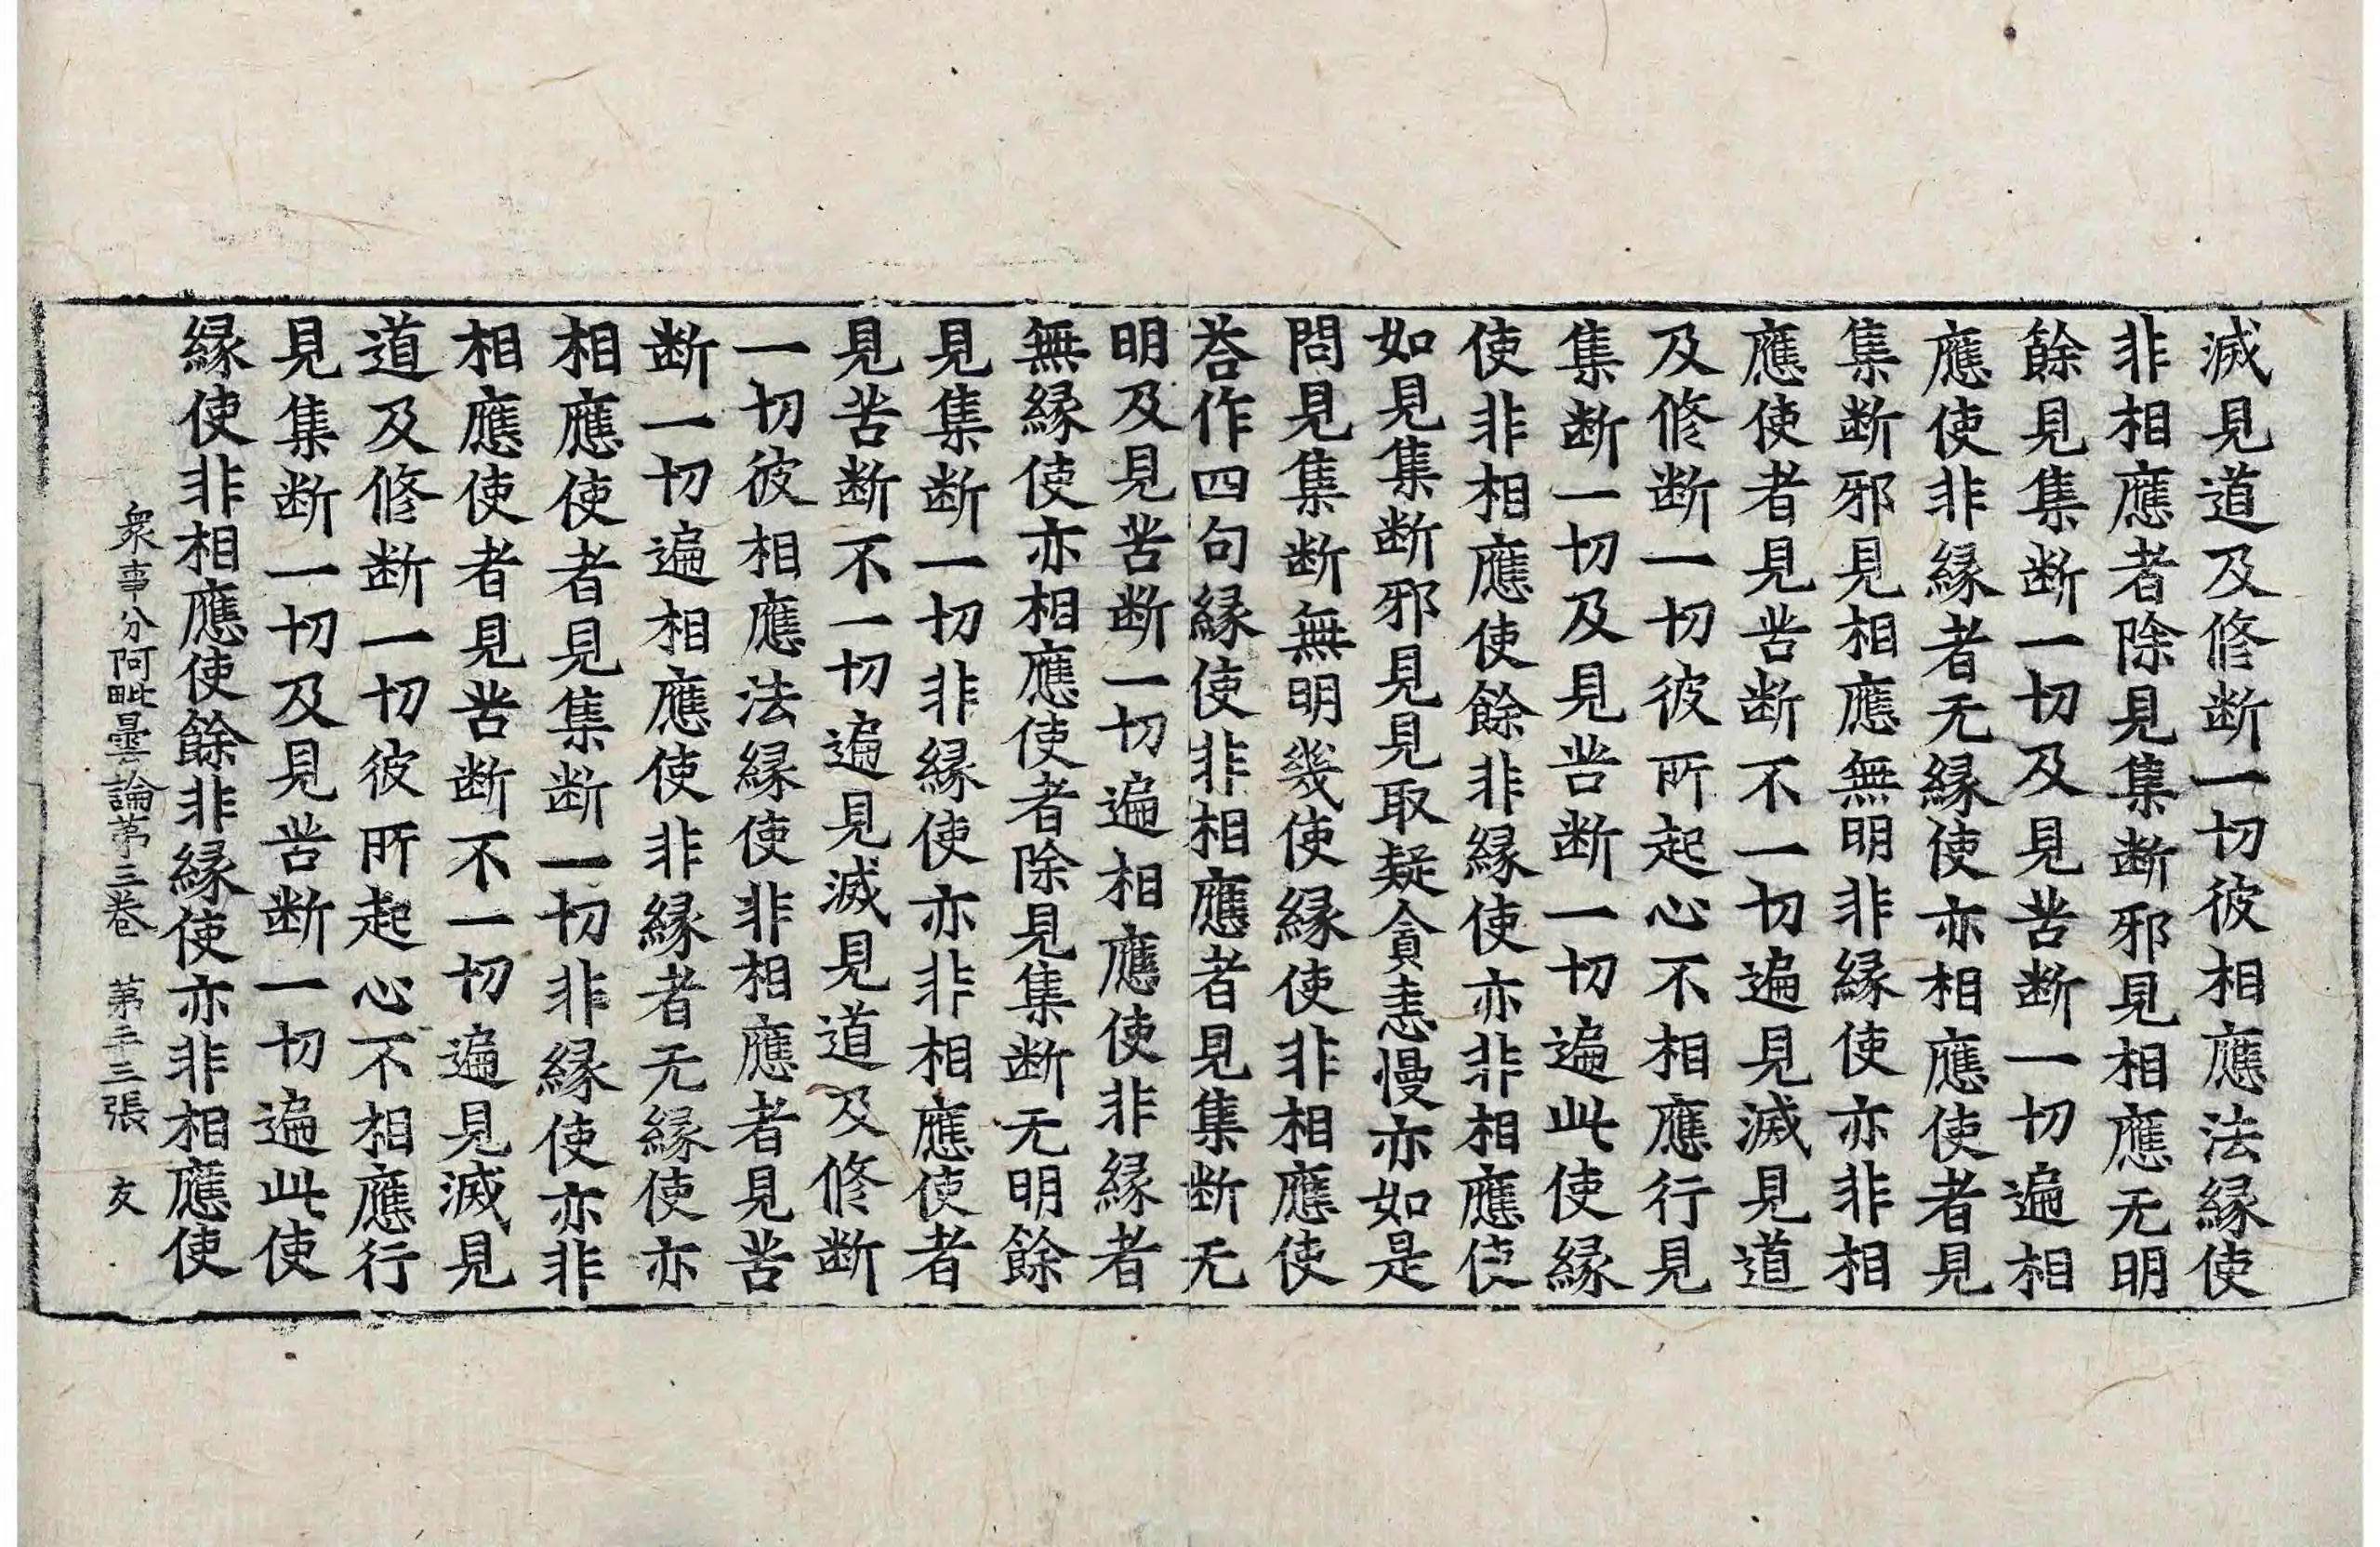 滅見道及修断一切彼相應法縁使
非相應者除見集断邪見相應无明
餘見集断一切及見苦断一切遍相
應使非縁者无縁使亦相應使者見
集断邪見相應無明非縁使亦非相
應使者見苦断不一切遍見滅見道
及修断一切彼所起心不相應行見
集断一切及見苦断一切遍此使縁
使非相應使餘非縁使亦非相應使
如見集断邪見見取疑貪恚慢亦如是
問見集断無明幾使縁使非相應使
荅作四句縁使非相應者見集断无
明及見苦断一切遍相應使非縁者
無縁使亦相應使者除見集断无明餘
見集断一切非縁使亦非相應使者
見苦断不一切遍見滅見道及修断
一切彼相應法縁使非相應者見苦
断一切遍相應使非縁者无縁使亦
相應使者見集断一切非縁使亦非
相應使者見苦断不一切遍見滅見
道及修断一切彼所起心不相應行
見集断一切及見苦断一切遍此使
縁使非相應使餘非縁使亦非相應使
衆事分阿毗曇論苐三卷 苐二十三張 友